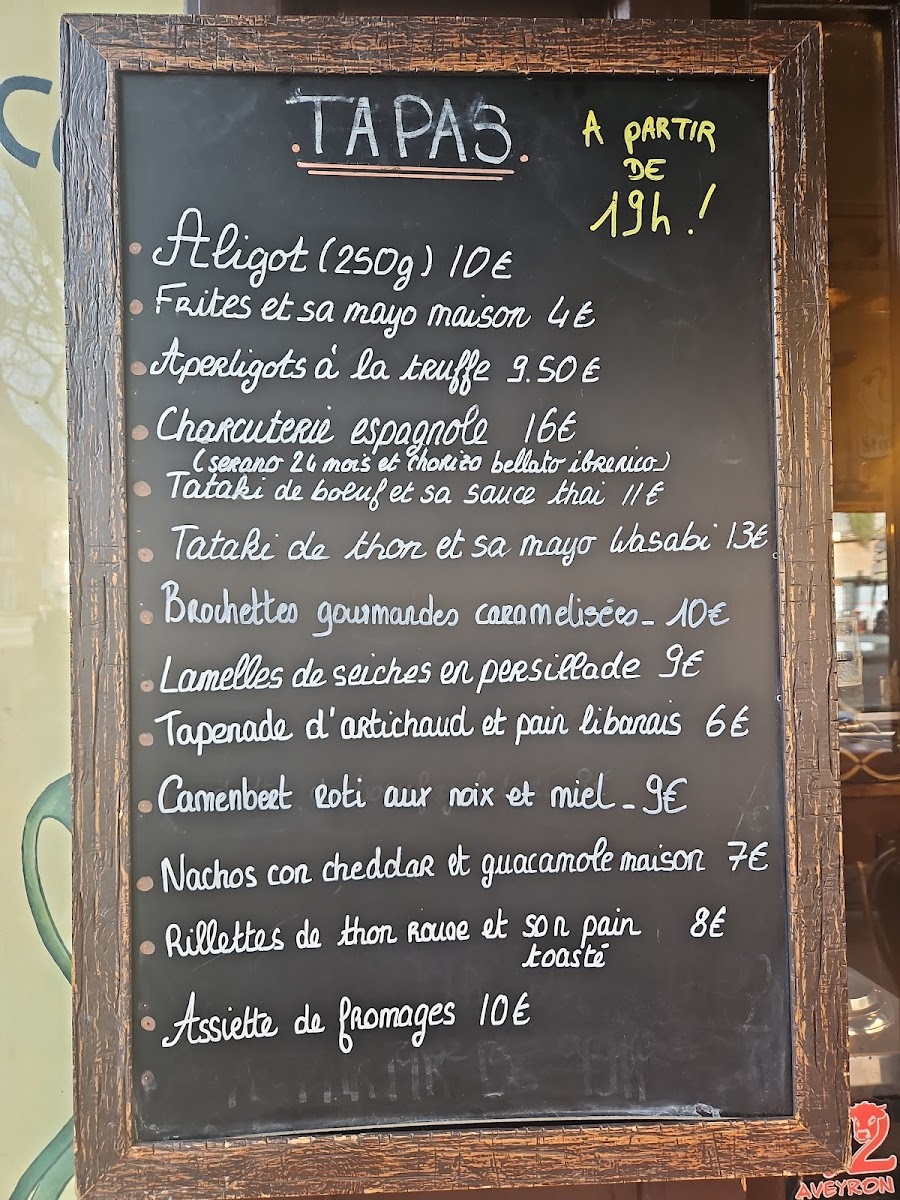 TAPAS
A PARTIR
DE
19h !
Aligot (250g) 10€
Frites et sa mayo maison 4€
Aperligots à la truffe 9.50€
Charcuterie espagnole 16€
(serano 24 mois et chorizo bellato ibrenico)
Tataki de boeuf et sa sauce thai 11€
Tataki de thon et sa mayo Wasabi 13€
Brochettes gourmandes caramelisées - 10€
Lamelles de seiches en persillade 9€
Tapenade d'artichaud et pain libanais 6€
Camenbert roti aux noix et miel - 9€
Nachos con cheddar et guacamole maison 7€
Rillettes de thon rouge et son pain 8€
toasté
Assiette de fromages 10€
2
AVEYRON